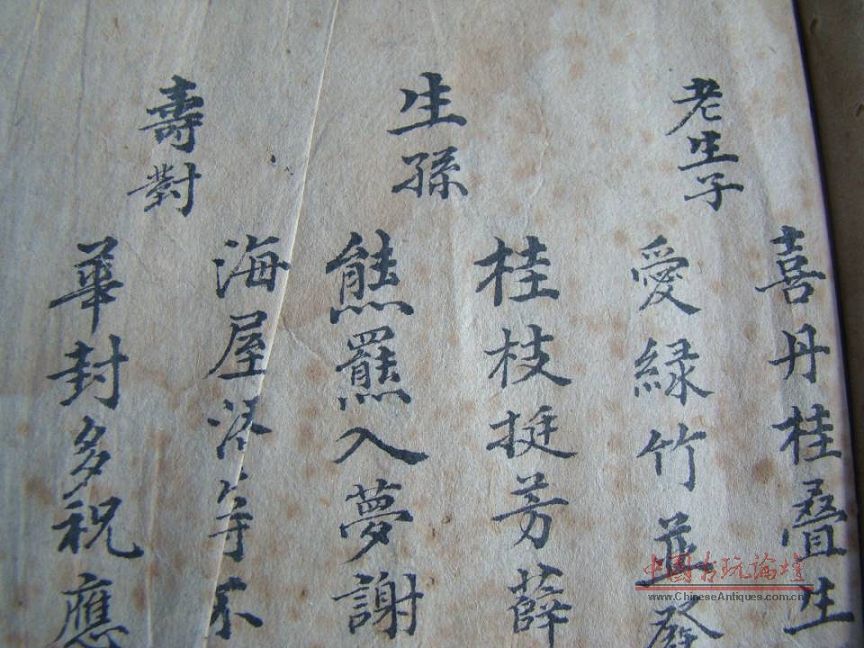 老生子
喜丹桂叠生
愛緑竹並發
生孫
桂枝挺芳薛
熊羆入夢謝
壽對
海屋落籌不
華封多祝應
中國古玩論壇
www.ChineseAntiques.com.cn